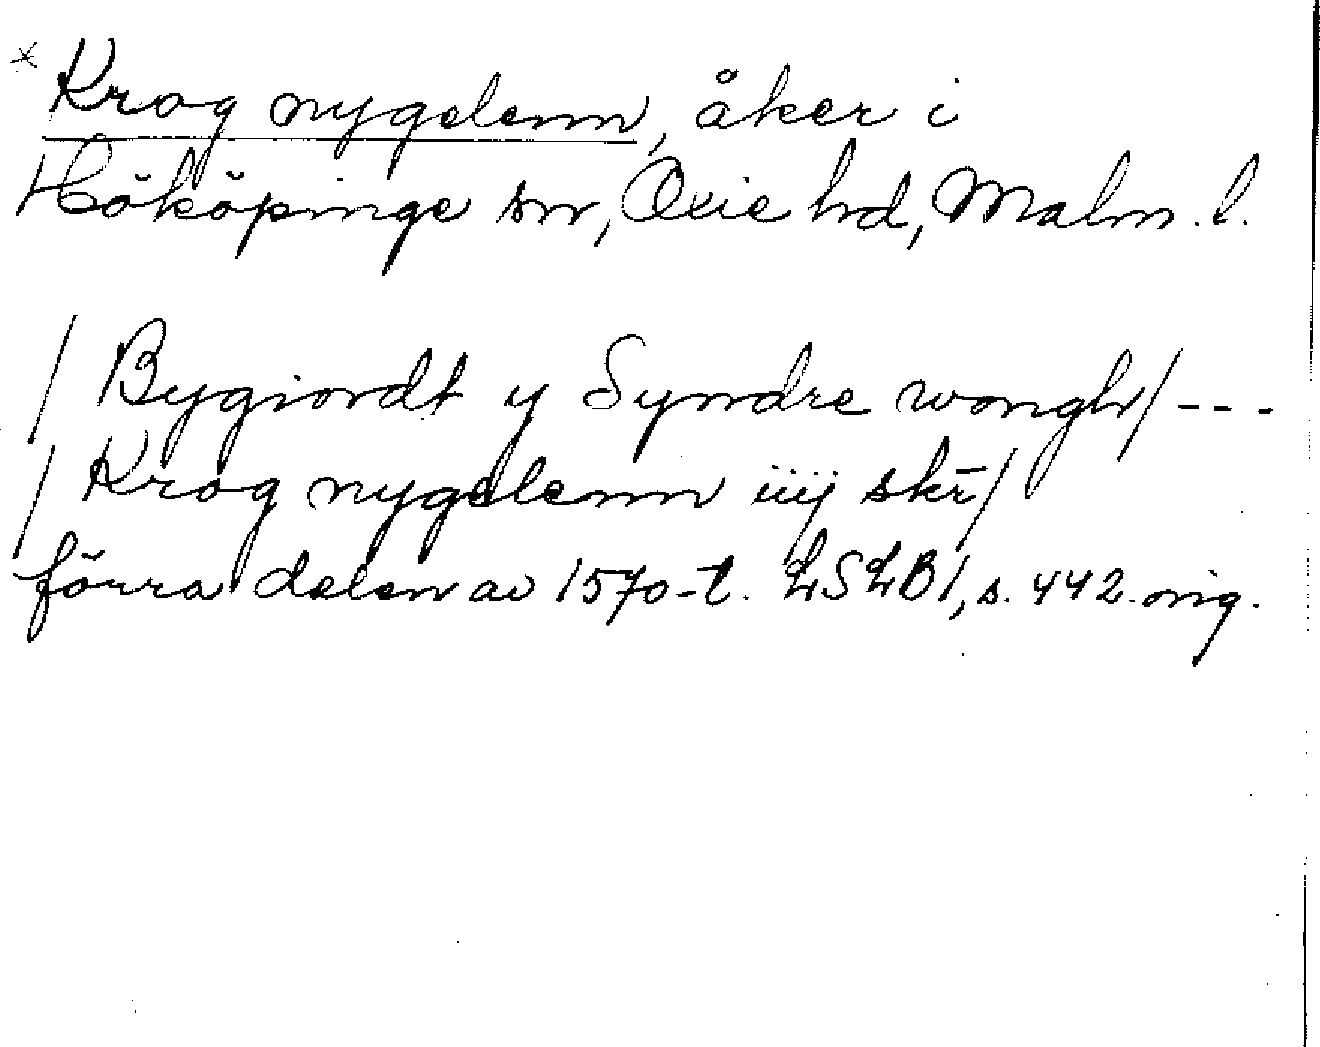 * Krog nygelenn, åker i
Hököpinge sn, Oxie hd, Malm. l.
/ Bygiordt y Syndre wongh/ ---
/ Krog nygelenn iiij skr̄/
förra delen av 1570-t. LSLB1, s. 442. orig.